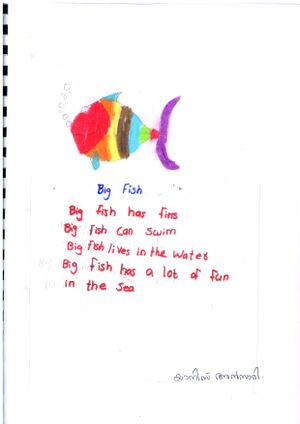 Big Fish
Big fish has fins
Big fish can swim
Big fish lives in the water
Big fish has a lot of fun
in the sea